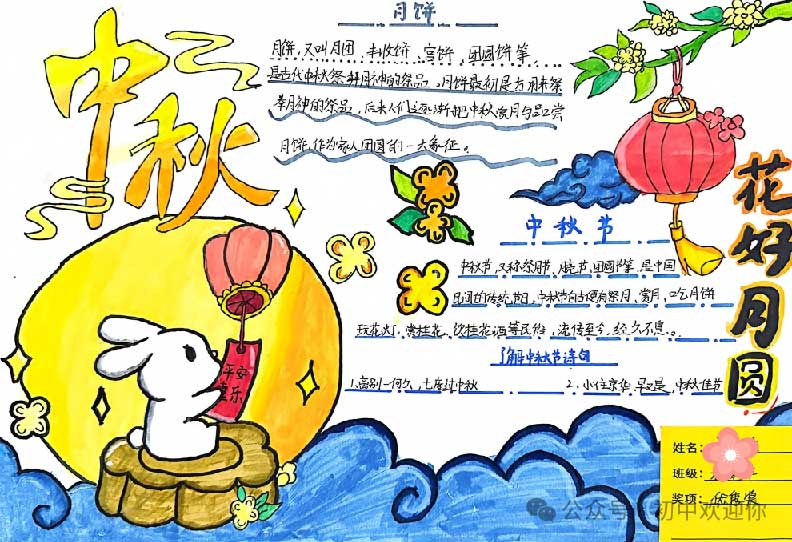 中秋
月饼
月饼,又叫月团、丰收饼、宫饼、团圆饼等,
是古代中秋祭拜月神的祭品。月饼最初是方用来祭
奉月神的祭品,后来人们逐渐把中秋赏月与品尝
月饼,作为家人团圆的一大象征。
花好月圆
中秋节
中秋节,又称祭月节、团圆节等,是中国
民间的传统节日,中秋节自古便有祭月、赏月、吃月饼
玩花灯、赏桂花、饮桂花酒等民俗,流传至今,经久不息。
了解中秋节诗句
1.离别一何久,七度过中秋
2.小住京华,早又是,中秋佳节
平安
喜乐
姓名:
班级:
奖项:优良奖
公众号:初中欢迎你